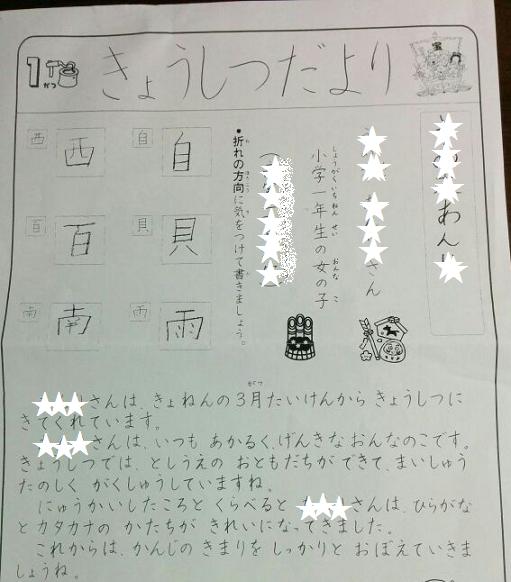 1がつ
きょうしつだより
わん
さん
小学一年生の女の子
しょうがくいちねんせい おんな こ
•折れの方向に気をつけて書きましょう。
自 自
貝 貝
雨 雨
西 西
百 百
南 南
さんは、きょねんの3月たいけんから きょうしつに
がつ
きてくれています。
さんは、いつも あかるく、げんきな おんなのこです。
きょうしつでは、としうえの おともだちが できて、まいしゅう
たのしく がくしゅうしていますね。
にゅうかいしたころと くらべると さんは、ひらがな
とカタカナの かたちが きれいになってきました。
これからは、かんじの きまりを しっかりと おぼえていきま
しょうね。